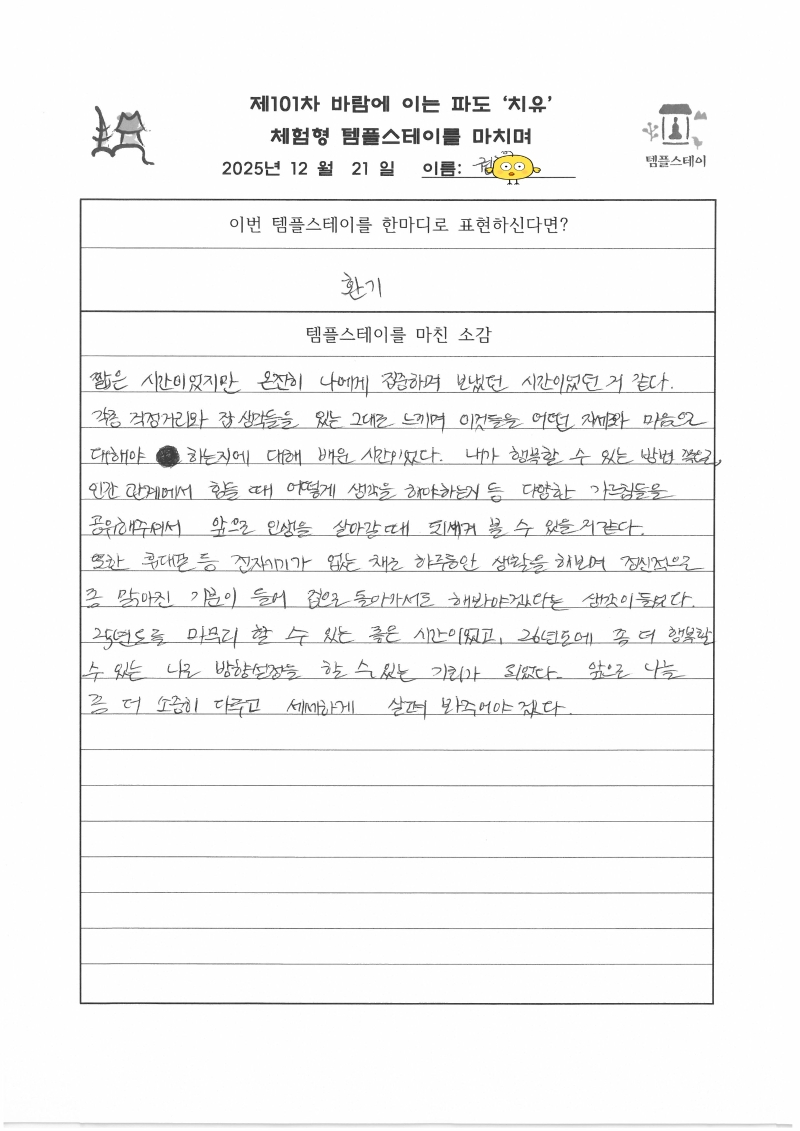 제101차 바람에 이는 파도 ‘치유’
체험형 템플스테이를 마치며
2025년 12 월 21 일 이름:
템플스테이
이번 템플스테이를 한마디로 표현하신다면?
환기
템플스테이를 마친 소감
짧은 시간이었지만 온전히 나에게 집중하며 보냈던 시간이었던 거 같다.
각종 걱정거리와 잡생각들을 있는 그대로 느끼며 이것들을 어떤 자세와 마음으로
대해야 하는지에 대해 배운 시간이었다. 내가 행복할 수 있는 방법 쪽으로,
인간관계에서 힘들 때 어떻게 생각을 해야하는지 등 다양한 가르침들을
공유해주셔서 앞으로 인생을 살아갈 때 되새겨 볼 수 있을 거 같다.
또한 휴대폰 등 전자기기가 없는 채로 하루동안 생활을 해보며 정신적으로
좀 맑아진 기분이 들어 집으로 돌아가서도 해봐야겠다는 생각이 들었다.
25년도를 마무리 할 수 있는 좋은 시간이었고, 26년도에 좀 더 행복할
수 있는 나로 방향설정을 할 수 있는 기회가 되었다. 앞으로 나를
좀 더 소중히 다루고 세세하게 살펴 봐주어야겠다.